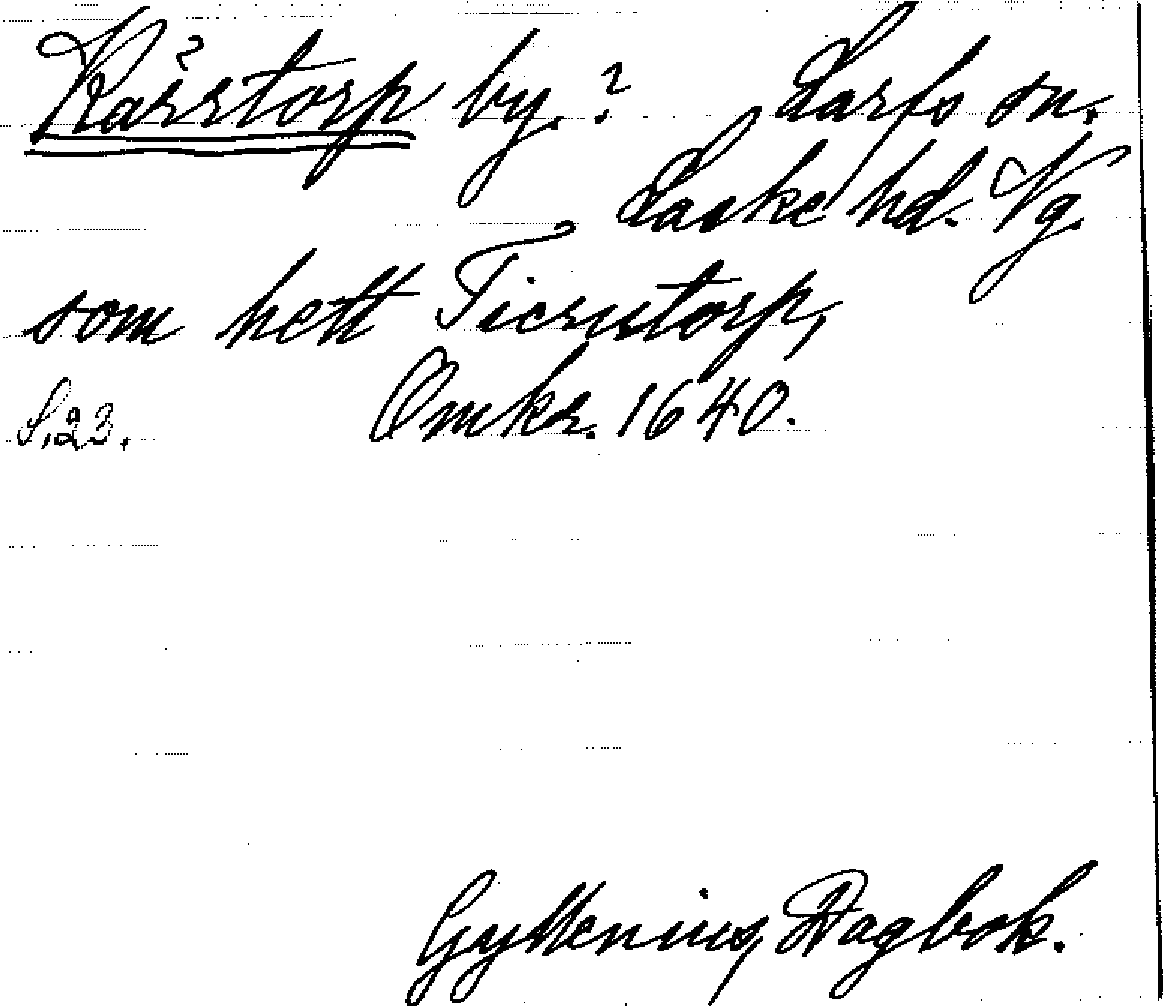 Kårstorp by. ? Larfs sn.
Laske hd. Vg.
som hett Tierstorp,
S. 23. Omkr. 1640.
Gyllenius, Dagbok.